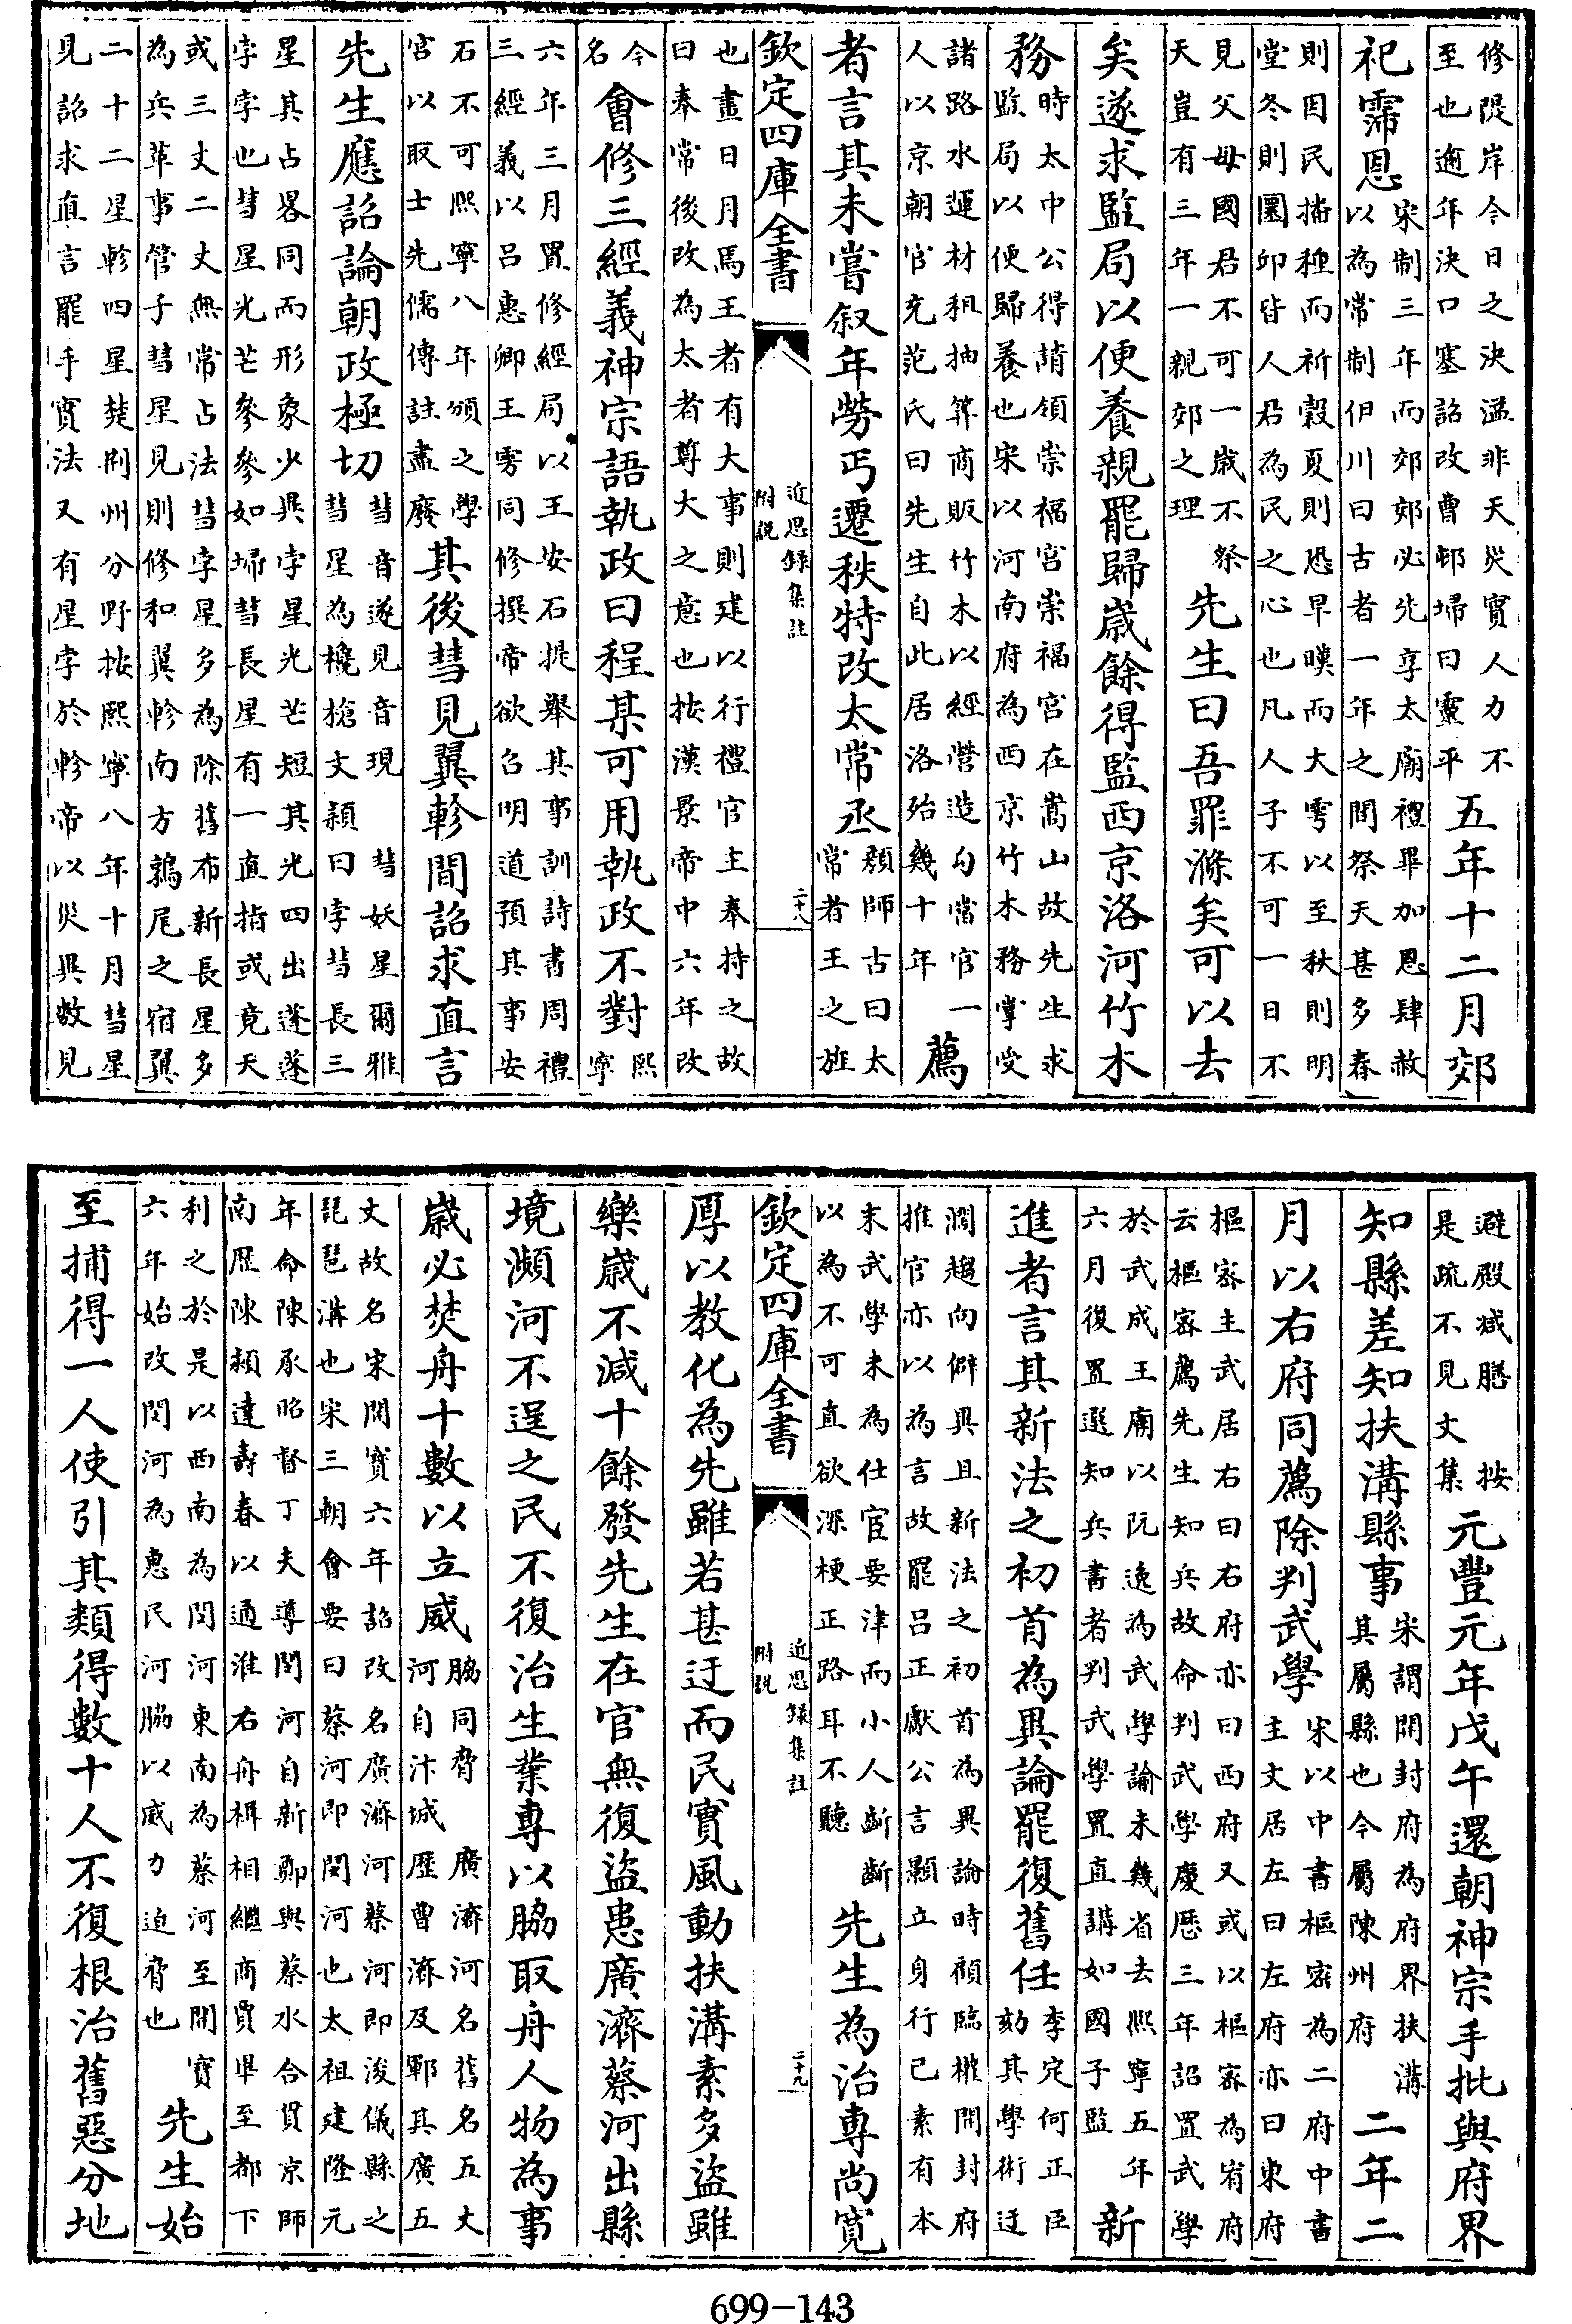 修隄岸今日之決溢非天災實人力不
至也邇年決口塞詔改曹邨埽曰靈平
五年十二月郊
祀霈恩
宋制三年而郊郊必先享太廟禮畢加恩肆赦
以為常制伊川曰古者一年之間祭天甚多春
則因民播種而祈穀夏則恐旱暵而大雩以至秋則明
堂冬則圜丘皆人君為民之心也凡人子不可一日不
見父母國君不可一歲不祭
天豈有三年一親郊之理
先生曰吾罪滌矣可以去
矣遂求監局以便養親罷歸歲餘得監西京洛河竹木
務
時太中公得請領崇福宮崇福宮在嵩山故先生求
監局以便歸養也宋以河南府為西京竹木務掌受
諸路水運材租抽筭商販竹木以經營造勾當官一
人以京朝官充范氏曰先生自此居洛殆幾十年
薦
者言其未嘗叙年勞丐遷秩特改太常丞
顏師古曰太
常者王之旌
欽定四庫全書
近思録集註
附説
二十八
也畫日月焉王者有大事則建以行禮官主奉持之故
曰奉常後改為太者尊大之意也按漢景帝中六年改
今
名
會修三經義神宗語執政曰程某可用執政不對
熙
寧
六年三月置修經局以王安石提舉其事訓詩書周禮
三經義以吕惠卿王雱同修撰帝欲召明道預其事安
石不可熙寧八年頒之學
宮以取士先儒傳註盡廢
其後彗見翼軫間詔求直言
先生應詔論朝政極切
彗音遂見音現 彗妖星爾雅
彗星為欃槍文頴曰孛彗長三
星其占畧同而形象少異孛星光芒短其光四出蓬蓬
孛孛也彗星光芒參參如埽彗長星有一直指或竟天
或三丈二丈無常占法彗孛星多為除舊布新長星多
為兵革事管子彗星見則修和翼軫南方鶉尾之宿翼
二十二星軫四星楚荆州分野按熙寧八年十月彗星
見詔求直言罷手實法又有星孛於軫帝以災異數見
避殿減膳 按
是疏不見文集
元豐元年戊午還朝神宗手批與府界
知縣差知扶溝縣事
宋謂開封府為府界扶溝
其屬縣也今屬陳州府
二年二
月以右府同薦除判武學
宋以中書樞宻為二府中書
主文居左曰左府亦曰東府
樞宻主武居右曰右府亦曰西府又或以樞宻為宥府
云樞宻薦先生知兵故命判武學慶厯三年詔置武學
於武成王廟以阮逸為武學諭未幾省去熙寧五年
六月復置選知兵書者判武學置直講如國子監
新
進者言其新法之初首為異論罷復舊任
李定何正臣
劾其學術迂
濶趨向僻異且新法之初首為異論時顧臨權開封府
推官亦以為言故罷吕正獻公言顥立身行已素有本
末武學未為仕宦要津而小人齗齗
以為不可直欲深梗正路耳不聽
先生為治專尚寛
欽定四庫全書
近思録集註
附説
二十九
厚以教化為先雖若甚迂而民實風動扶溝素多盜雖
樂歲不減十餘發先生在官無復盜患廣濟蔡河出縣
境瀕河不逞之民不復治生業專以脇取舟人物為事
歲必焚舟十數以立威
脇同脅 廣濟河名舊名五丈
河自汴城歷曹濟及鄆其廣五
丈故名宋開寳六年詔改名廣濟河蔡河即浚儀縣之
琵琶溝也宋三朝會要曰蔡河即閔河也太祖建隆元
年命陳承昭督丁夫導閔河自新鄭與蔡水合貫京師
南歷陳頴達壽春以通淮右舟楫相繼商賈畢至都下
利之於是以西南為閔河東南為蔡河至開寳
六年始改閔河為惠民河脇以威力迫脅也
先生始
至捕得一人使引其類得數十人不復根治舊惡分地
699-143